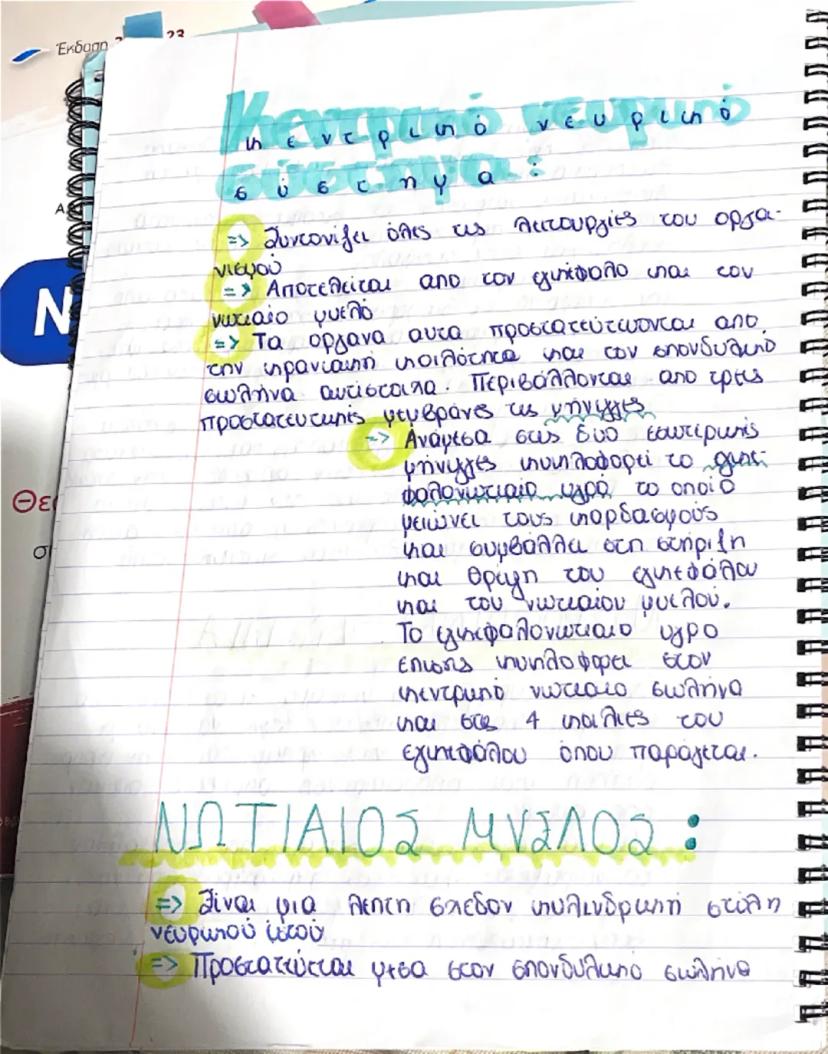 Έκδοση 2 23
Κεντρικό νευρικό
κεντρικό νευρικό
σύστημα:
σύστημα
Α
=> Συντονίζει όλες τις λειτουργίες του οργα-
νισμού
=> Αποτελείται απο τον εγκέφαλο και τον
νωτιαίο μυελό
N
=> Τα οργανα αυτα προστατεύτωονται απο
την κρανιακή κοιλότητα και τον σπονδυλικό
σωλήνα αντίστοιχα. Περιβάλλονται απο τρεις
προστατευτικές μεμβράνες τις μήνιγγες
=> Ανάμεσα στις δύο εσωτερικές
μήνιγγες κυκλοφορεί το εγκε-
φαλονωτιαίο υγρό το οποίο
Θε
μειώνει τους κραδασμούς
σ
και συμβάλλει στη στήριξη
και θρέψη του εγκεφάλου
και του νωτιαίου μυελού.
Το εγκεφαλονωτιαίο υγρο
επισης κυκλοφορει στον
κεντρικό νωτιαίο σωλήνα
και στις 4 κοιλίες του
εγκεφάλου όπου παράγεται.
ΝΩΤΙΑΙΟΣ ΜΥΕΛΟΣ:
=> Είναι μια λεπτη σχεδον κυλινδρική στήλη
νευρικού ιστού
=> Προστατεύεται μέσα στον σπονδυλικό σωλήνα